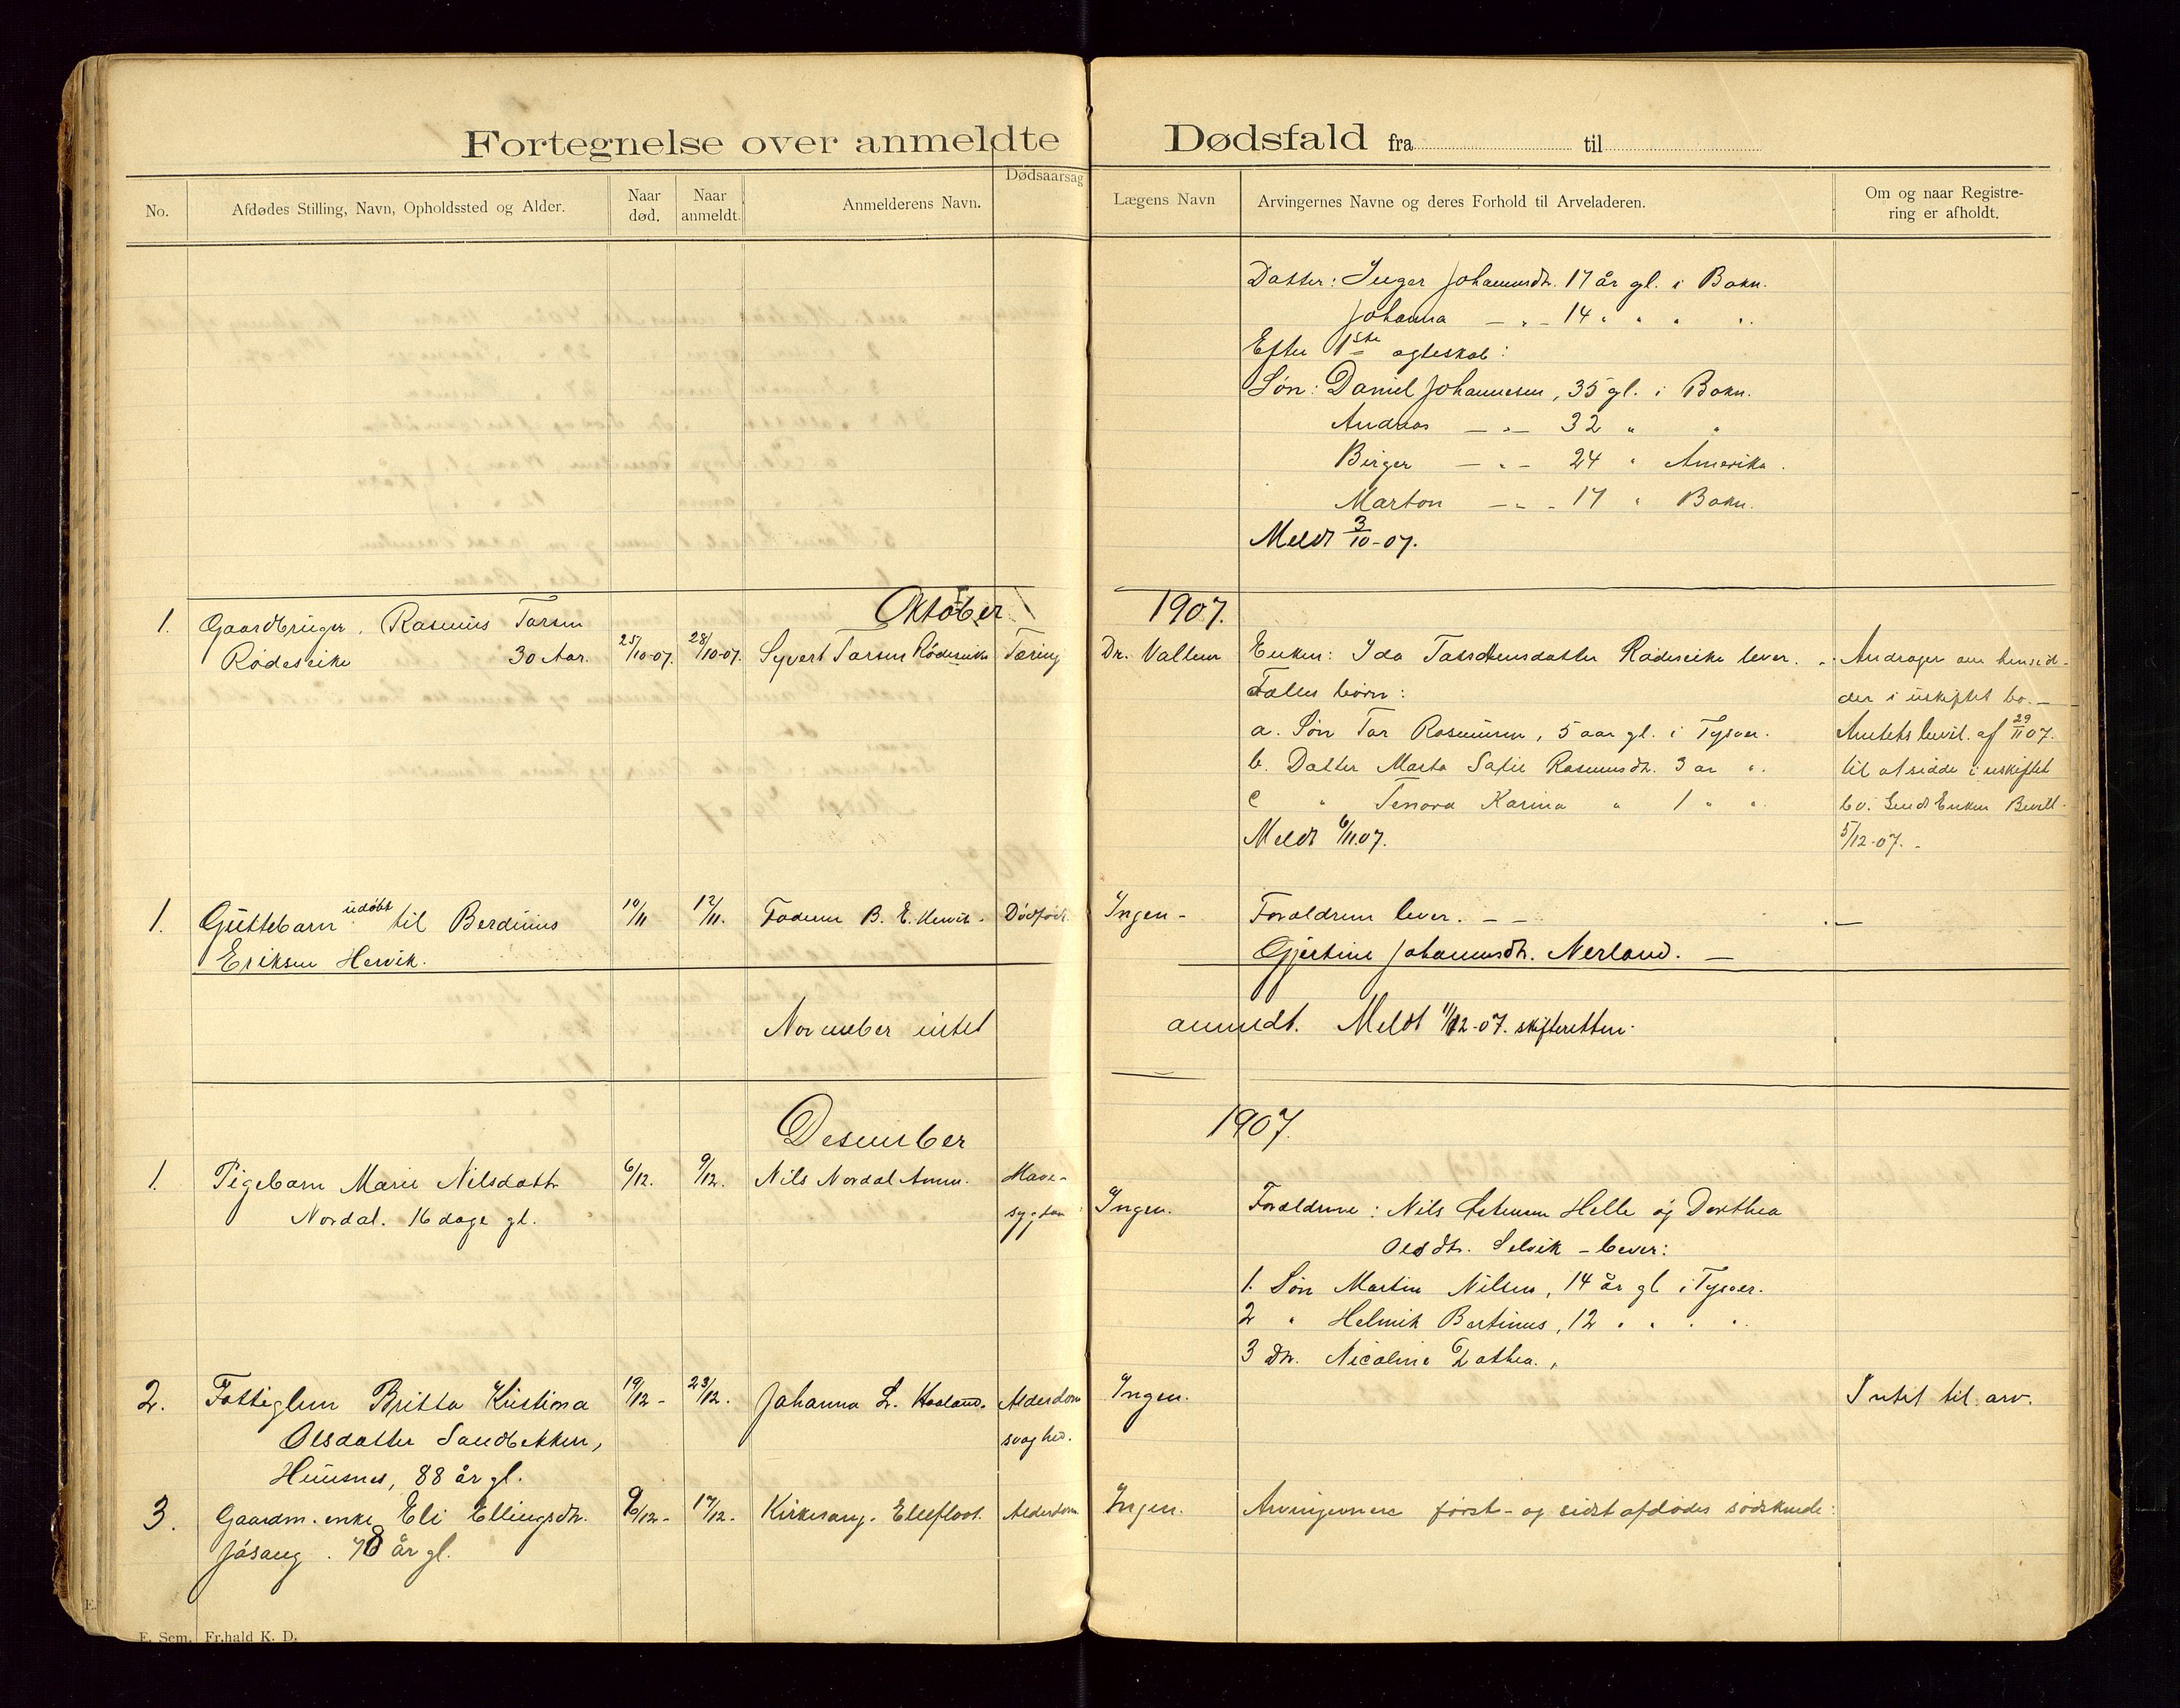 Fortegnelse over anmeldte Dødsfald fra til
No.
Afdødes Stilling, Navn, Opholdssted og Alder.
Naar død.
Naar anmeldt.
Anmelderens Navn.
Dødsaarsag
Lægens Navn
Arvingernes Navne og deres Forhold til Arveladeren.
Om og naar Registrering er afholdt.
Datter: Inger Johannesdtr. 17 år gl. i Bokn.
Johanna — „ — 14 „ „ „ „
Efter 1ste ægteskab:
Søn: Daniel Johannesen, 35 gl. i Bokn.
Andreas — „ — 32 „ „
Birger — „ — 24 „ Amerika.
Marton — „ — 17 „ Bokn.
Meldt 3/10-07.
Oktober 1907.
1. Gaardbruger, Rasmus Tarsen
Rødeseike 30 Aar. 25/10-07. 28/10-07. Syvert Tarsen Rødeseike Tæring Dr. Valtum
Enken: Ida Rødeseike lever.
Fælles børn:
a. Søn Tar Rasmusen, 5 aar gl. i Tysvær.
b. Datter Marta Sofie Rasmusdtr. 3 ar „
c „ Karina „ 1 „ „
Meldt 6/11.07.
Andrager om hensid-
den i uskiftet bo. —
Amtets bevil. af 29/11 07.
til at sidde i uskiftet
bo. Sendt Enken Bevill.
5/12-07. -
1. Guttebarn udøbt til Berdinus 10/11 12/11. Faderen B. E. Hervik. Dødfødt. Ingen - Forældrene lever. — —
Eriksen Hervik.
Gjertine Johannesdtr. Nerland. —
November intet anmeldt. Meldt 11/12-07. skifteretten.
Desember 1907.
1. Pigebarn Marie Nilsdattr 6/12. 9/12. Nils Nordal Amm. Mave-
Nordal. 16 dage gl. sygdom Ingen.
Forældrene: Nils Helle og Dorthea
Olsdtr. Selvik - lever:
1. Søn Martin Nilsen, 14 år gl i Tysvær.
2 „ Helmik Bertinus, 12 „ „ „ „
3 Dtr. Nicoline
2. Fattiglem Britta Kristina 19/12 - 23/12. Johanna L. Haaland. Alderdom Ingen. Intet til arv.
Olsdatter Sandbekken, svaghed.
Hûusnes, 88 år gl.
3. Gaardm. enke Eli Ellingsdtr. 9/12 - 17/12. Kirkesang. Eliefloot. Alderdom. Ingen. Arvingerne først- og sidstafdødes sødskende:
Jøsang. 78 år gl.
E. Sem, Fr.hald K. D.